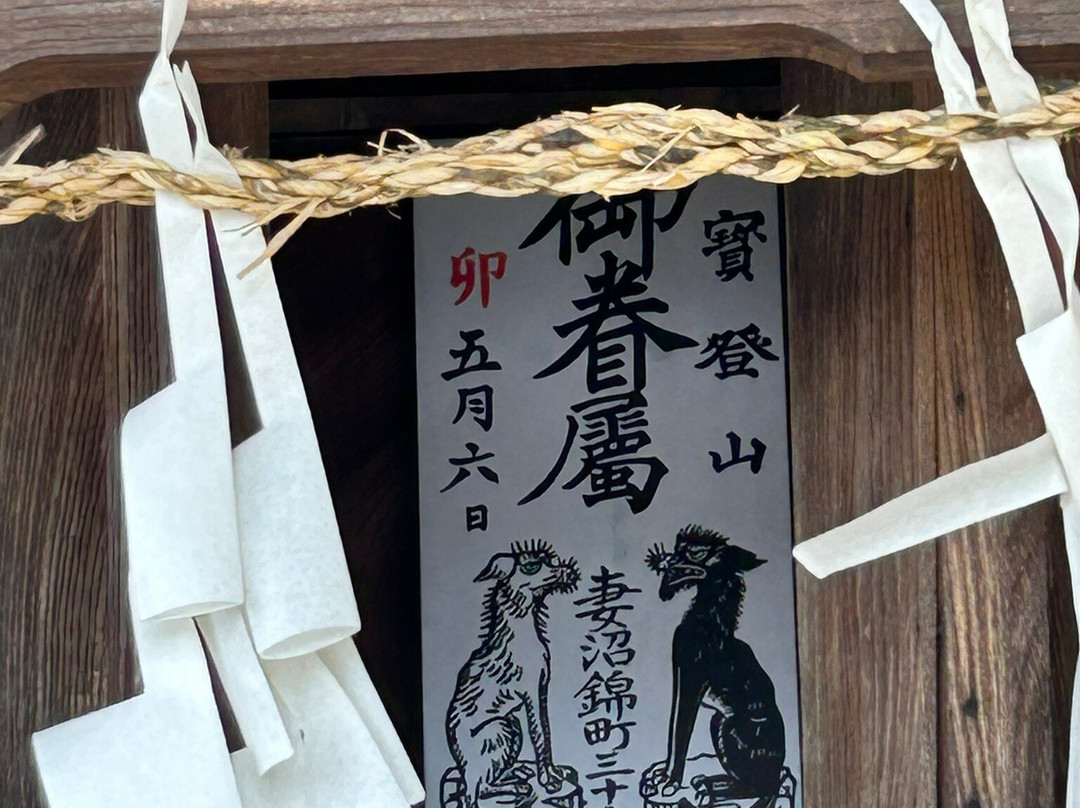 寶登山
御眷屬
卯五月六日
妻沼錦町三十